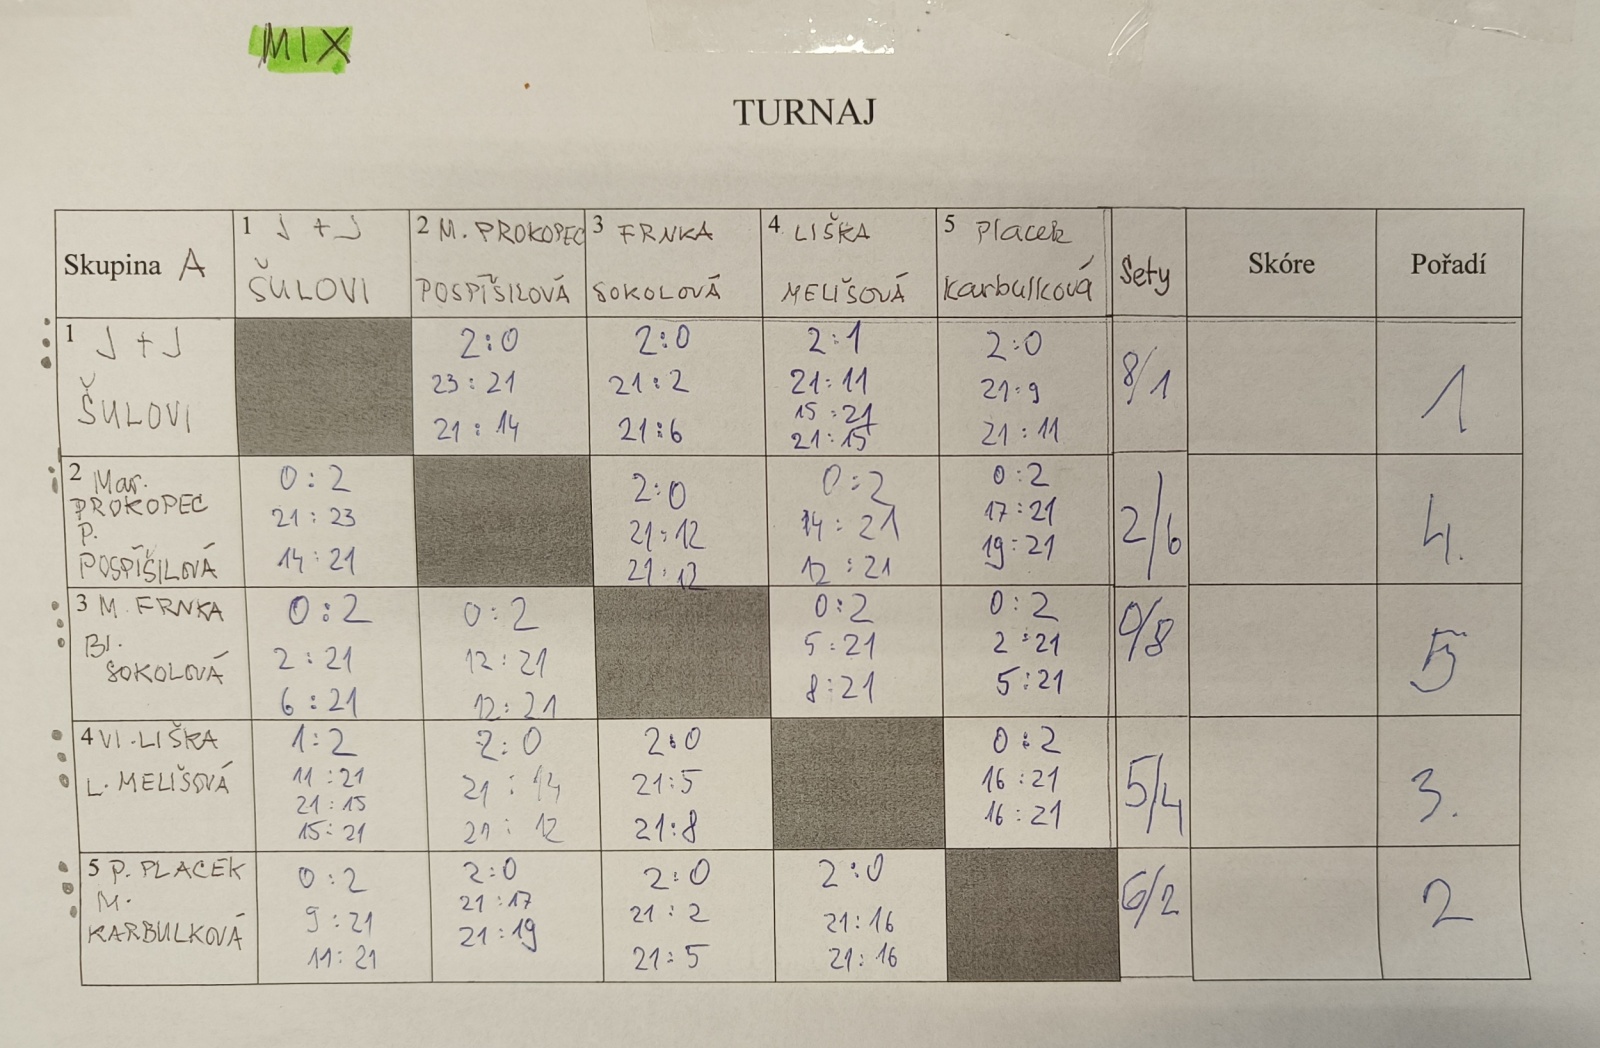 MIX
TURNAJ
Skupina A
1 J + J
ŠULOVI
2 M. PROKOPEC
POSPÍŠILOVÁ
3 FRNKA
SOKOLOVÁ
4 LIŠKA
MELIŠOVÁ
5 Placek
Karbulková
Sety
Skóre
Pořadí
1 J + J
ŠULOVI
2:0
23:21
21:14
2:0
21:2
21:6
2:1
21:11
15:21
21:15
2:0
21:9
21:11
8/1
1
2 Mar.
PROKOPEC
P.
POSPÍŠILOVÁ
0:2
21:23
14:21
2:0
21:12
21:12
0:2
14:21
12:21
0:2
17:21
19:21
2/6
4.
3 M. FRNKA
Bl.
SOKOLOVÁ
0:2
2:21
6:21
0:2
12:21
12:21
0:2
5:21
8:21
0:2
2:21
5:21
0/8
5
4 VI. LIŠKA
L. MELIŠOVÁ
1:2
11:21
21:15
15:21
2:0
21:14
21:12
2:0
21:5
21:8
0:2
16:21
16:21
5/4
3.
5 P. PLACEK
M.
KARBULKOVÁ
0:2
9:21
11:21
2:0
21:17
21:19
2:0
21:2
21:5
2:0
21:16
21:16
6/2
2